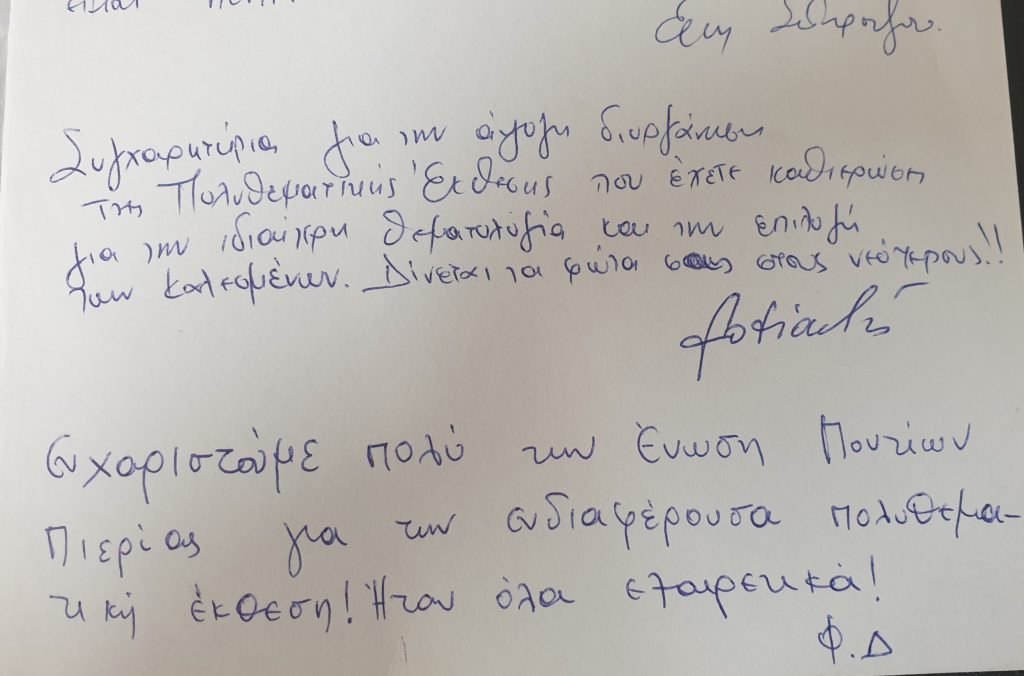 Συγχαρητήρια για την άψογη διοργάνωση
της Πολυθεματικής Έκθεσης που έχετε καθιερώσει
για την ιδιαίτερη θεματολογία και την επιλογή
των καλεσμένων. Δίνεται τα φώτα σας στους νεότερους!!
Ευχαριστούμε πολύ την Ένωση Ποντίων
Πιερίας για την ενδιαφέρουσα πολυθεμα-
τική έκθεση! Ήταν όλα εξαιρετικά!
Φ.Δ